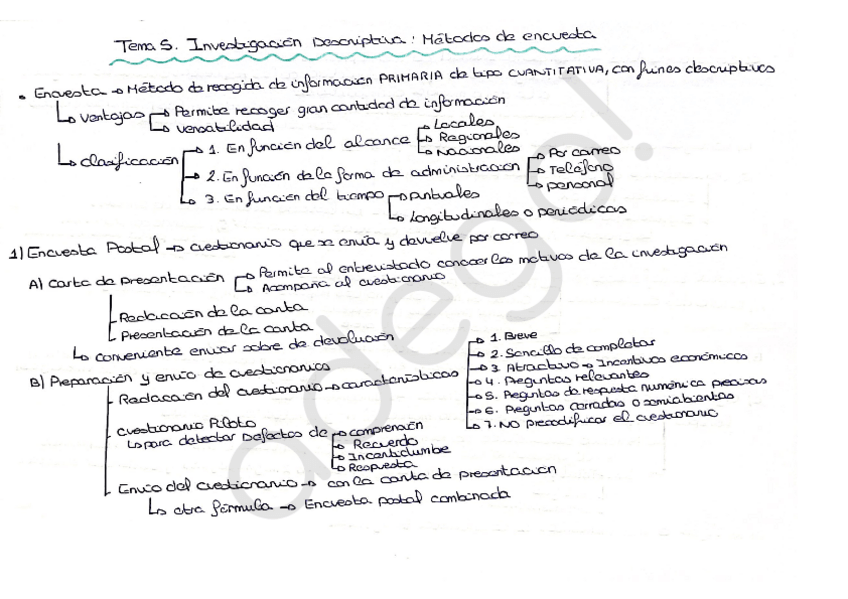 Tema 5. Investigación Descriptiva: Métodos de encuesta
• Encuesta → Método de recogida de información PRIMARIA de tipo CUANTITATIVA, con fines descriptivos
↳ Ventajas → Permite recoger gran cantidad de información
→ Versatilidad
↳ clasificación → 1. En función del alcance → Locales
→ Regionales
→ Nacionales
→ 2. En función de la forma de administración → Por correo
→ Teléfono
→ personal
→ 3. En función del tiempo → puntuales
→ longitudinales o periódicas
1) Encuesta Postal → cuestionario que se envía y devuelve por correo
A) Carta de presentación → Permite al entrevistado conocer los motivos de la investigación
→ Acompaña al cuestionario
Redacción de la carta
Presentación de la carta
↳ conveniente enviar sobre de devolución
B) Preparación y envío de cuestionarios
Redacción del cuestionario → características → 1. Breve
→ 2. Sencillo de completar
→ 3 Atractivo → Incentivos económicos
→ 4. Preguntas relevantes
→ 5. Preguntas de respuesta numérica precisas
→ 6. Preguntas cerradas o semiabiertas
→ 7. NO precodificar el cuestionario
cuestionario Piloto
↳ para detectar Defectos de → comprensión
→ Recuerdo
→ Incertidumbe
→ Respuesta
Envío del cuestionario → con la carta de presentación
↳ otra fórmula → Encuesta postal combinada
adego!